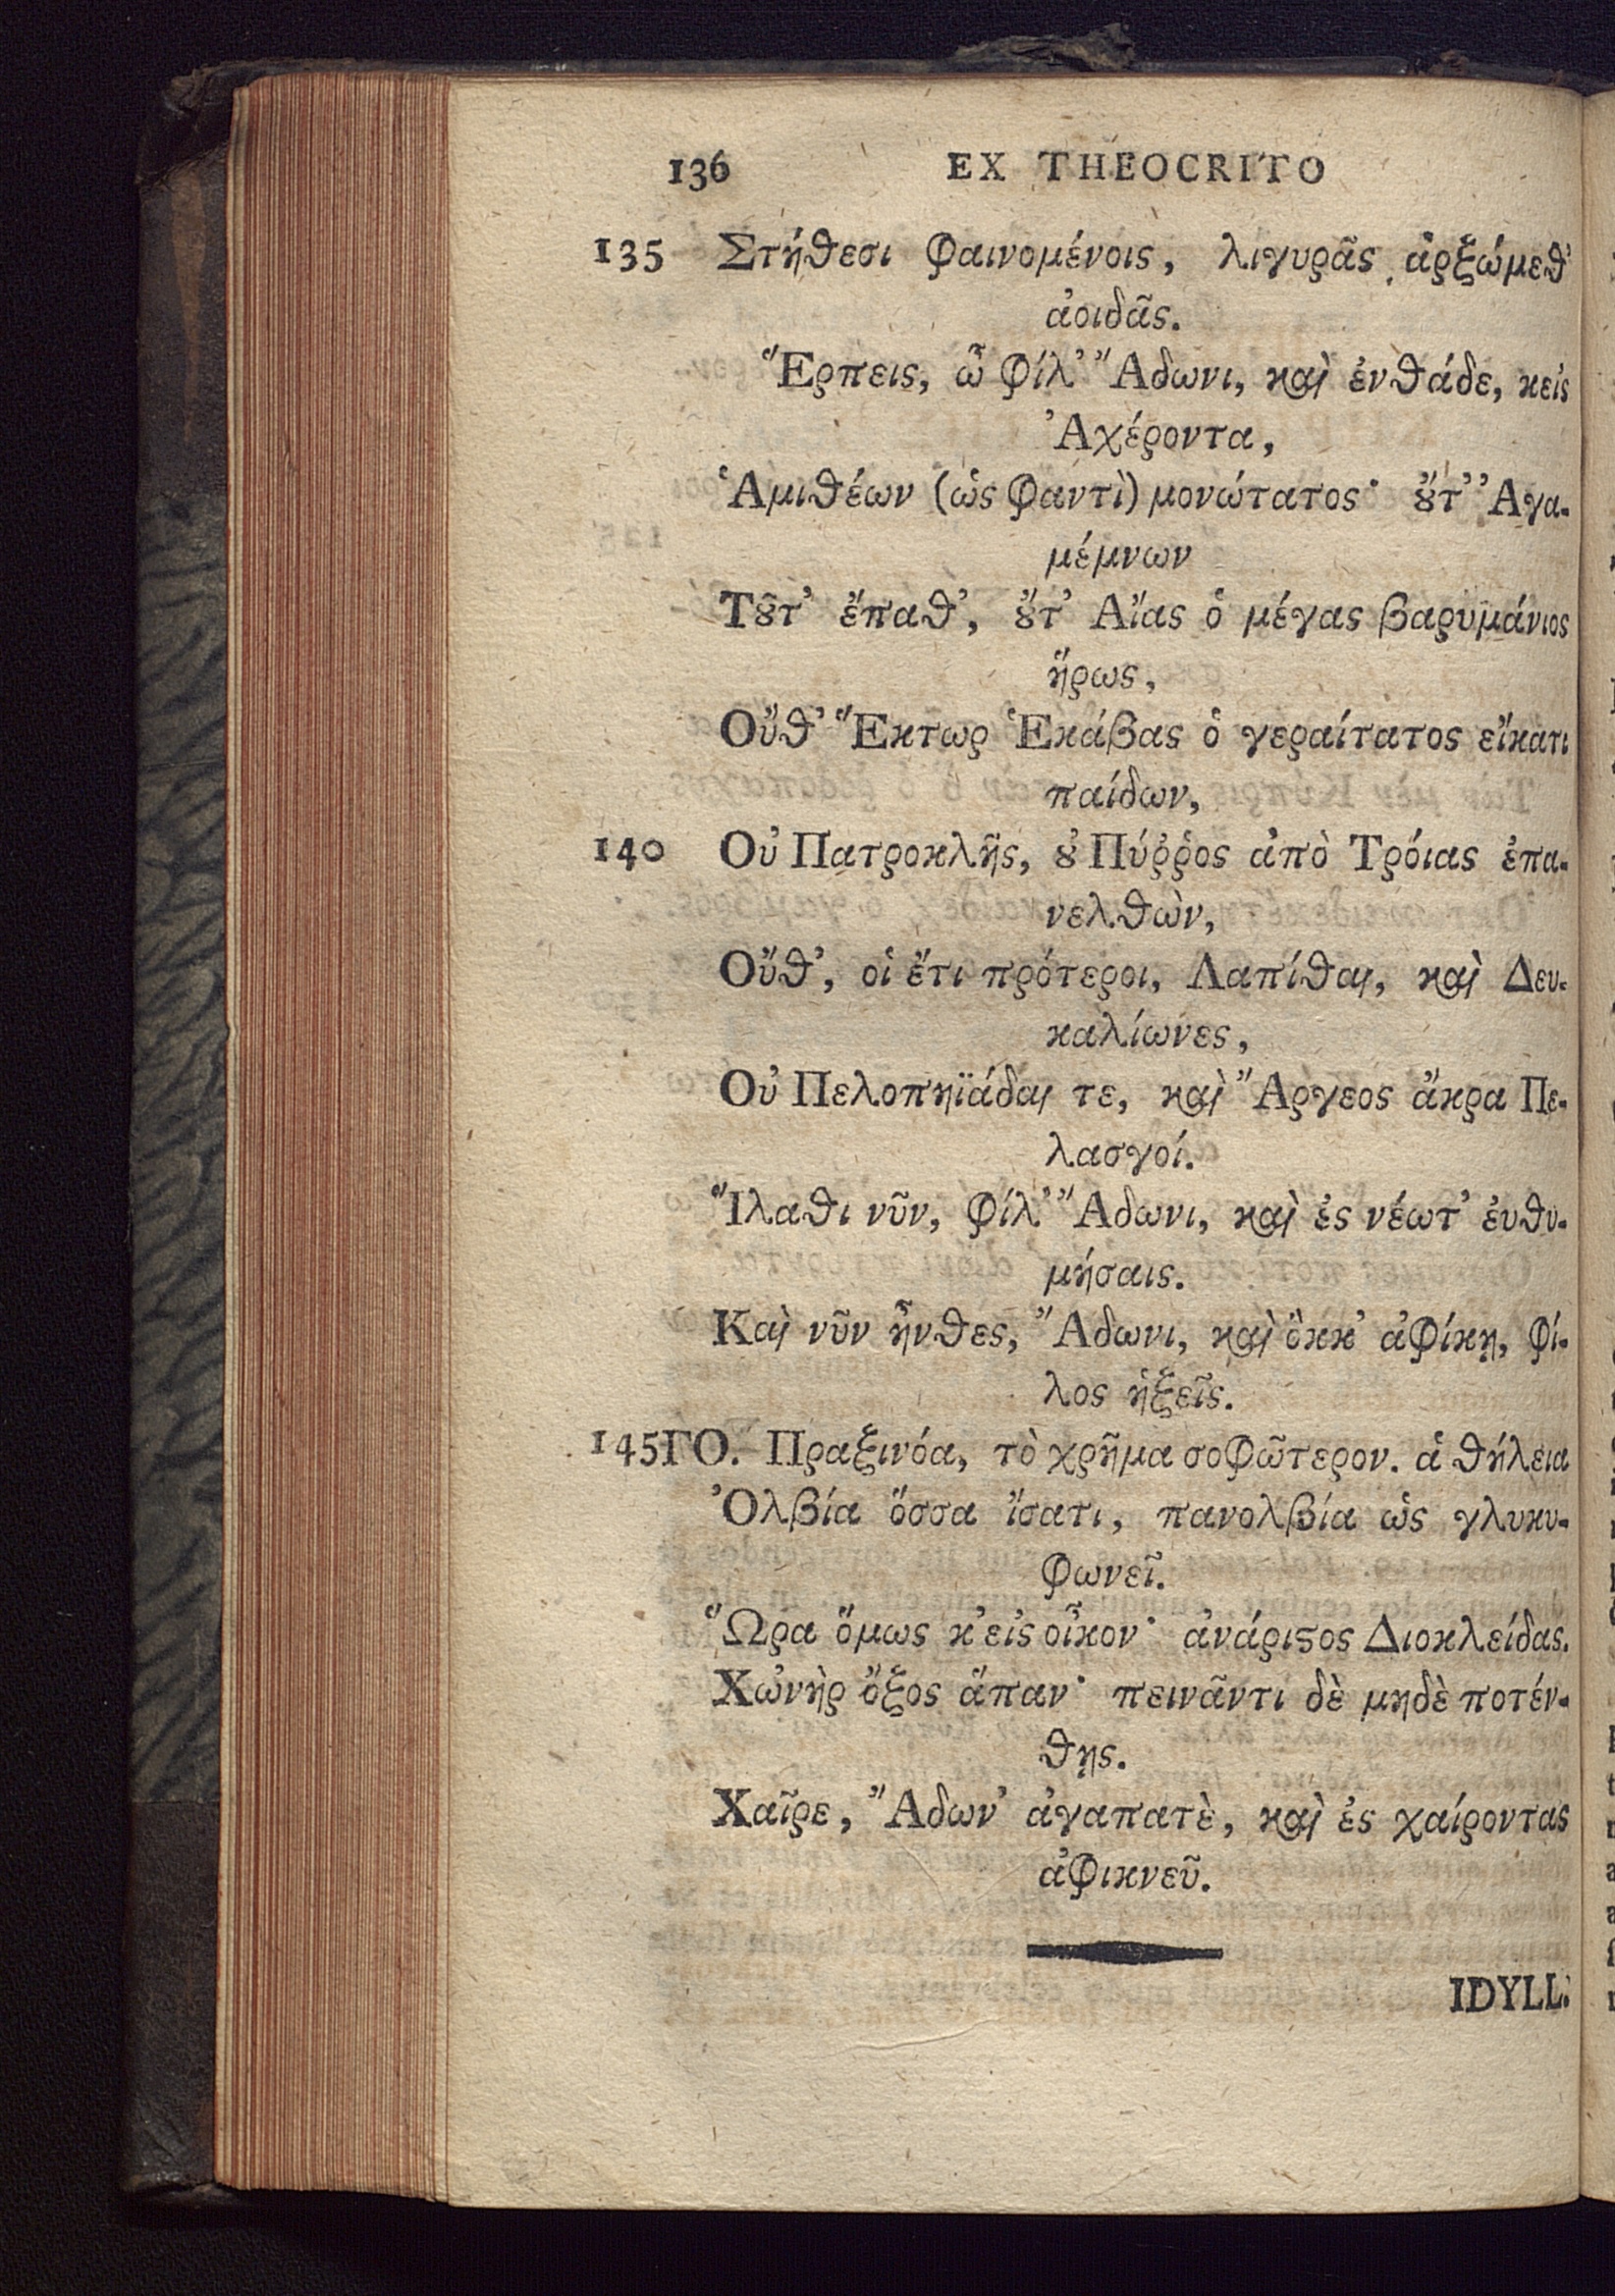 136 EX THEOCRITO
135 Στήθεσι φαινομένοις, λιγυρᾶς ἀρξώμεθ'
ἀοιδᾶς.
Ἕρπεις, ὦ φίλ' Ἄδωνι, καὶ ἐνθάδε, κεἰς
Ἀχέροντα,
Ἁμιθέων (ὡς φαντὶ) μονώτατος· ȣ̓́τ' Ἀγα-
μέμνων
Τȣ͂τ' ἔπαθ', ȣ̓́τ' Αἴας ὁ μέγας βαρυμάνιος
ἥρως,
Οὔθ' Ἕκτωρ Ἑκάβας ὁ γεραίτατος εἴκατι
παίδων,
140 Οὐ Πατροκλῆς, ȣ̓ Πύῤῥος ἀπὸ Τρόιας ἐπα-
νελθὼν,
Οὔθ', οἱ ἔτι πρότεροι, Λαπίθαι, καὶ Δευ-
καλίωνες,
Οὐ Πελοπηϊάδαι τε, καὶ Ἄργεος ἄκρα Πε-
λασγοί.
Ἵλαθι νῦν, φίλ' Ἄδωνι, καὶ ἐς νέωτ' ἐυθυ-
μήσαις.
Καὶ νῦν ἦνθες, Ἄδωνι, καὶ ὅκκ' ἀφίκῃ, φί-
λος ἡξεῖς.
145 ΓΟ. Πραξινόα, τὸ χρῆμα σοφῶτερον. ἁ θήλεια
Ὀλβία ὅσσα ἴσατι, πανολβία ὡς γλυκυ-
φωνεῖ.
Ὥρα ὅμως κ' εἰς οἶκον· ἀνάριϛος Διοκλείδας.
Χὠνὴρ ὄξος ἅπαν· πεινᾶντι δὲ μηδὲ ποτέν-
θῃς.
Χαῖρε, Ἄδων' ἀγαπατὲ, καὶ ἐς χαίροντας
ἀφικνεῦ.
IDYLL.